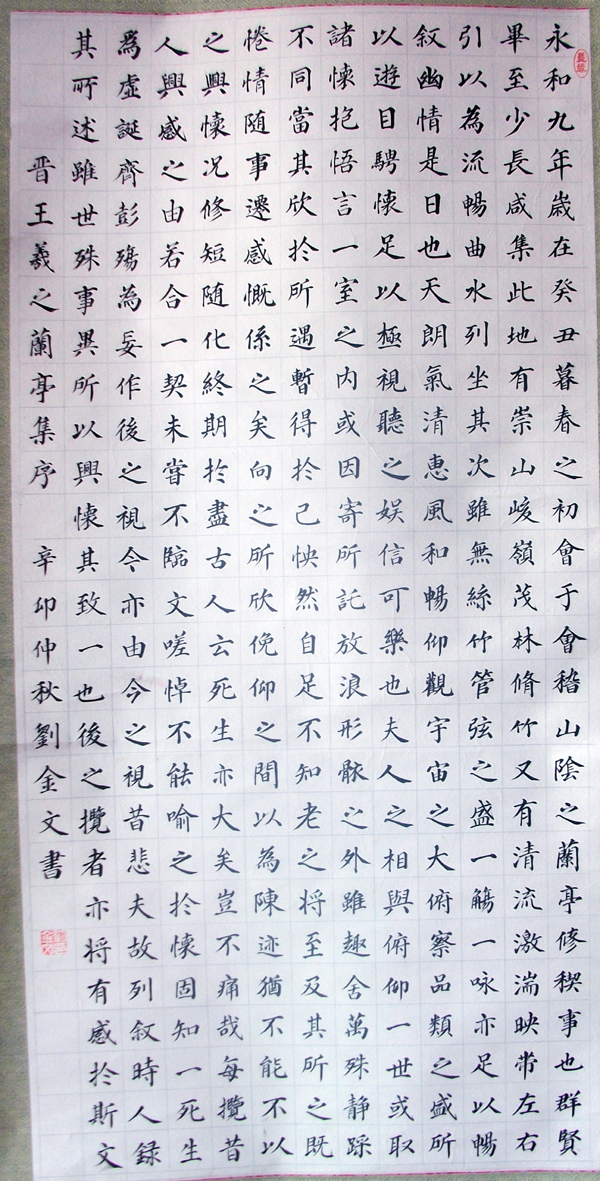 永和九年歲在癸丑暮春之初會于會稽山陰之蘭亭修稧事也群賢
畢至少長咸集此地有崇山峻嶺茂林脩竹又有清流激湍映帶左右
引以為流暢曲水列坐其次雖無絲竹管弦之盛一觴一咏亦足以暢
叙幽情是日也天朗氣清惠風和暢仰觀宇宙之大俯察品類之盛所
以遊目騁懷足以極視聽之娱信可樂也夫人之相與俯仰一世或取
諸懷抱悟言一室之内或因寄所託放浪形骸之外雖趣舍萬殊静踩
不同當其欣於所遇暫得於己怏然自足不知老之将至及其所之既
惓情随事遷感慨係之矣向之所欣俛仰之間以為陳迹猶不能不以
之興懷况修短随化終期於盡古人云死生亦大矣豈不痛哉每攬昔
人興感之由若合一契未嘗不臨文嗟悼不能喻之於懷固知一死生
為虛誕齊彭殤為妄作後之視今亦由今之視昔悲夫故列叙時人録
其所述雖世殊事異所以興懷其致一也後之攬者亦将有感於斯文
晋王羲之蘭亭集序 辛卯仲秋劉金文書